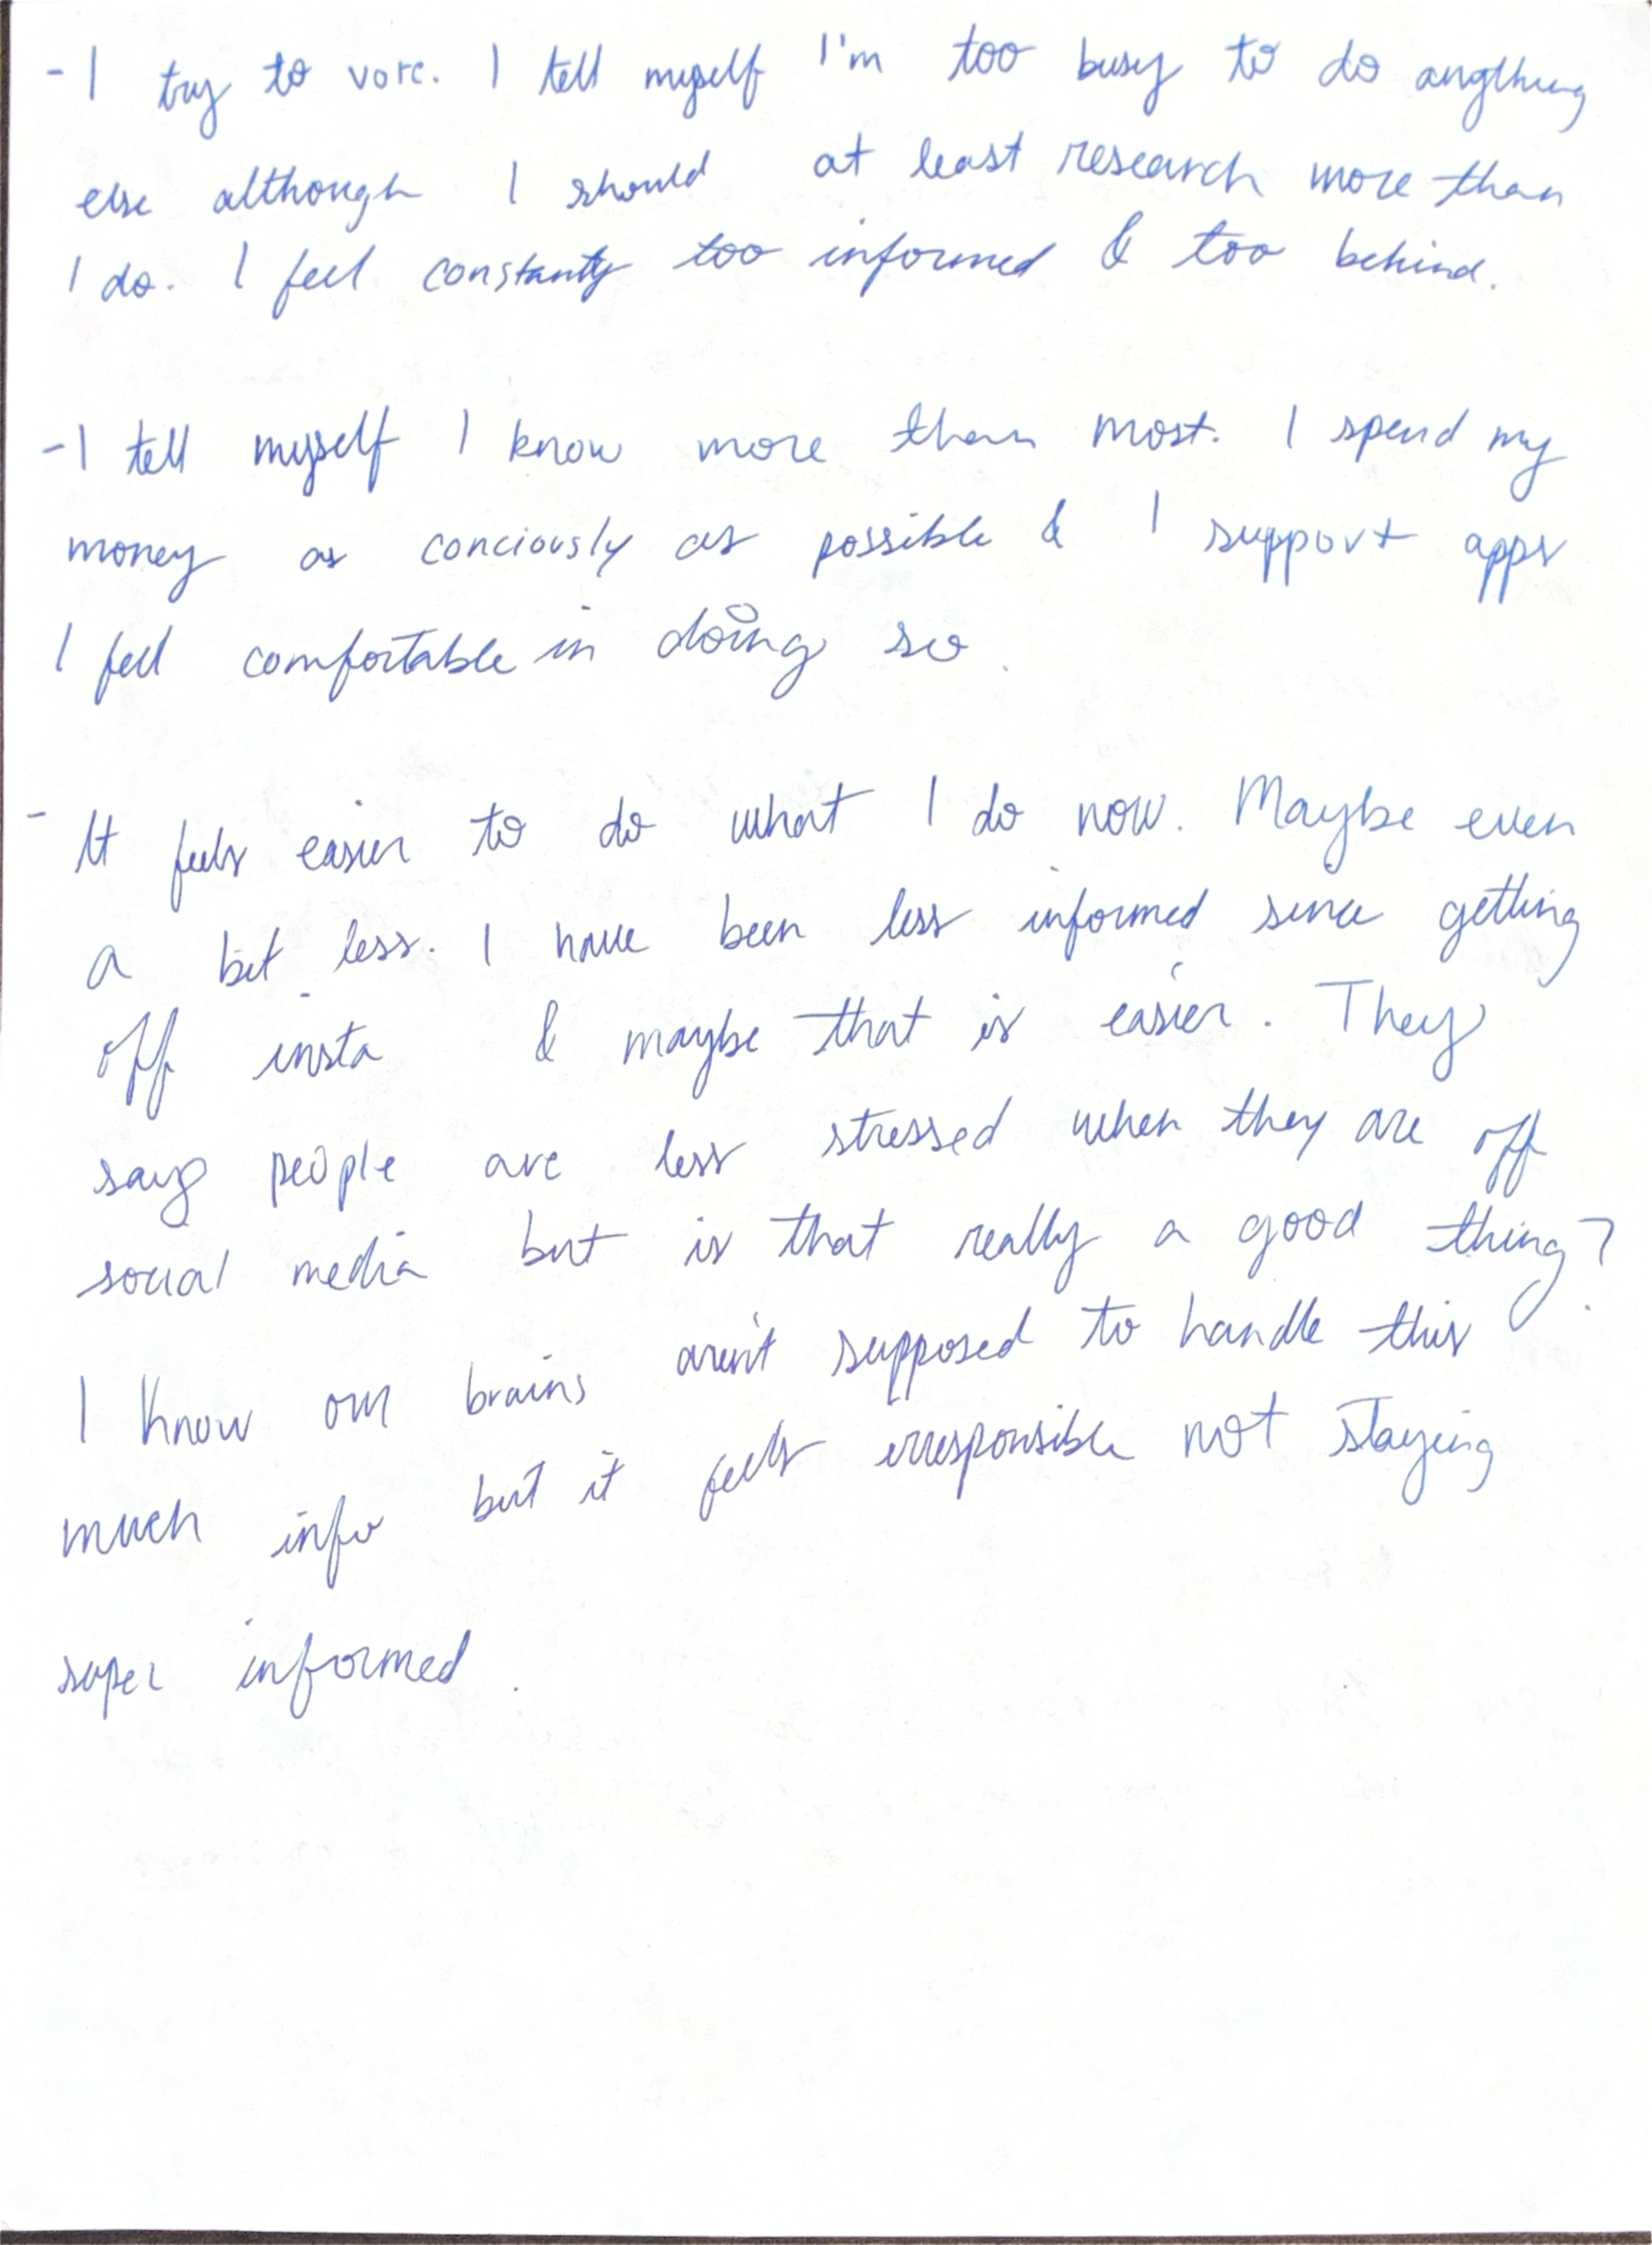 - I try to vote. I tell myself I'm too busy to do anything
else although I should at least research more than
I do. I feel constantly too informed & too behind.
- I tell myself I know more than most. I spend my
money as conciously as possible & I support apps
I feel comfortable in doing so.
- It feels easier to do what I do now. Maybe even
a bit less. I have been less informed since getting
off insta & maybe that is easier. They
say people are less stressed when they are off
social media but is that really a good thing?
I know our brains aren't supposed to handle this
much info but it feels irresponsible not staying
super informed.